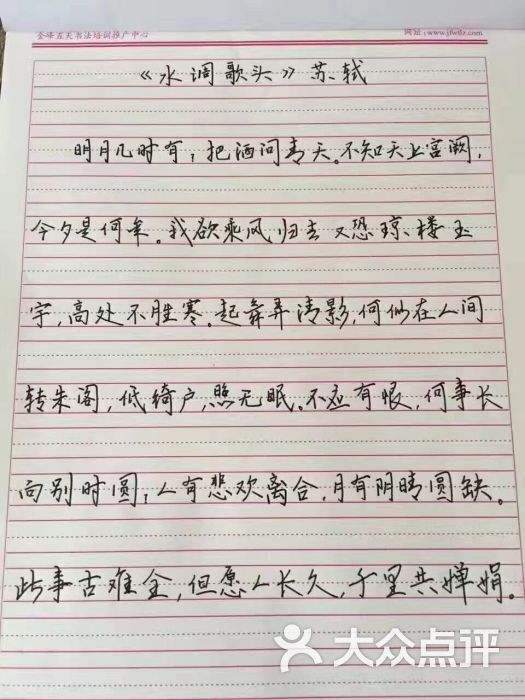 金峰五天书法培训推广中心 网址:www.jfwtfz.com
《水调歌头》苏轼
明月几时有,把酒问青天。不知天上宫阙,
今夕是何年。我欲乘风归去又恐琼楼玉
宇,高处不胜寒。起舞弄清影,何似在人间
转朱阁,低绮户,照无眠。不应有恨,何事长
向别时圆,人有悲欢离合,月有阴晴圆缺。
此事古难全,但愿人长久,千里共婵娟。
大众点评